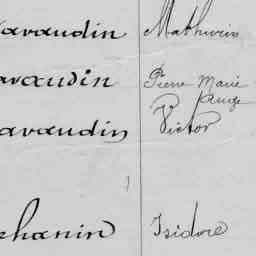 avaudin Mathurin
avaudin Pierre Marie
Ange
avaudin Victor
hanin Isidore